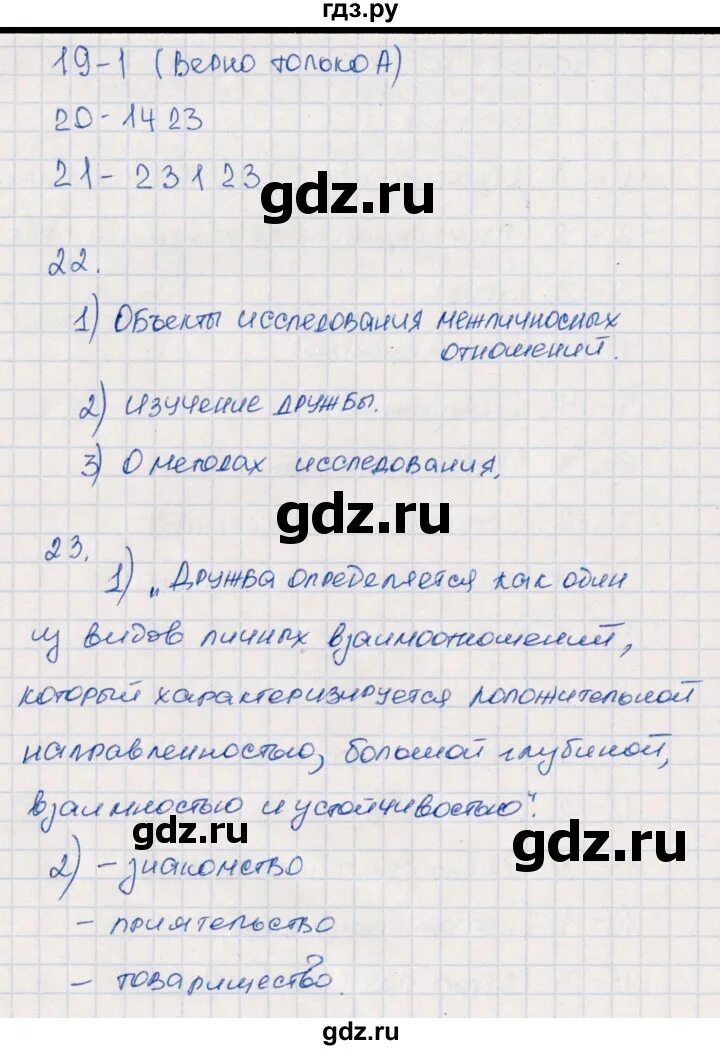 гдз.ру
19-1 (Верно только А)
20- 1423
21- 23123
gdz.ru
22.
1) Объекты исследования межличносных
отношений.
2) Изучение дружбы.
3) О методах исследования.
gdz.ru
23.
1) „Дружба определяется как один
из видов личных взаимоотношений,
который характеризируется положительной
направленностью, большой глубиной,
взаимностью и устойчивостью“.
gdz.ru
gdz.ru
2) - знакомство
- приятельство
- товарищество.
gdz.ru